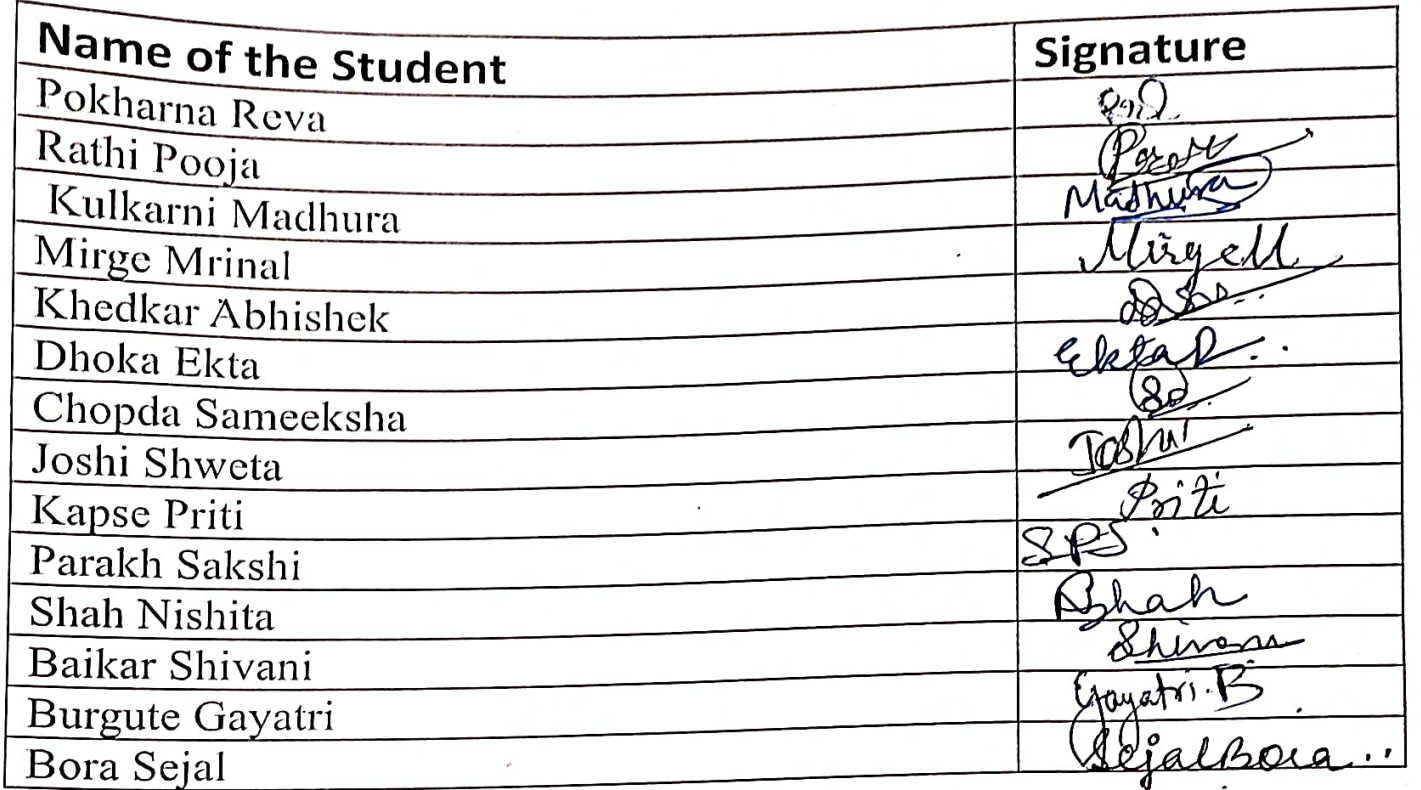 Name of the Student Signature
Pokharna Reva
Rathi Pooja
Kulkarni Madhura Madhura
Mirge Mrinal MirgeM
Khedkar Abhishek
Dhoka Ekta Ekta D..
Chopda Sameeksha
Joshi Shweta Joshi
Kapse Priti Priti
Parakh Sakshi SPS
Shah Nishita Shah
Baikar Shivani Shivani
Burgute Gayatri Gayatri.B
Bora Sejal Sejal Bora..